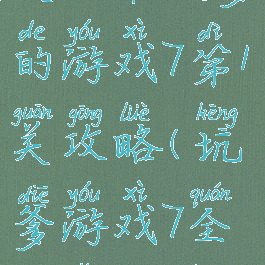 de yóu xì dì
的游戏7第1
guān gōng lüè kēng
关攻略(坑
diē yóu xì quán
爹游戏7全